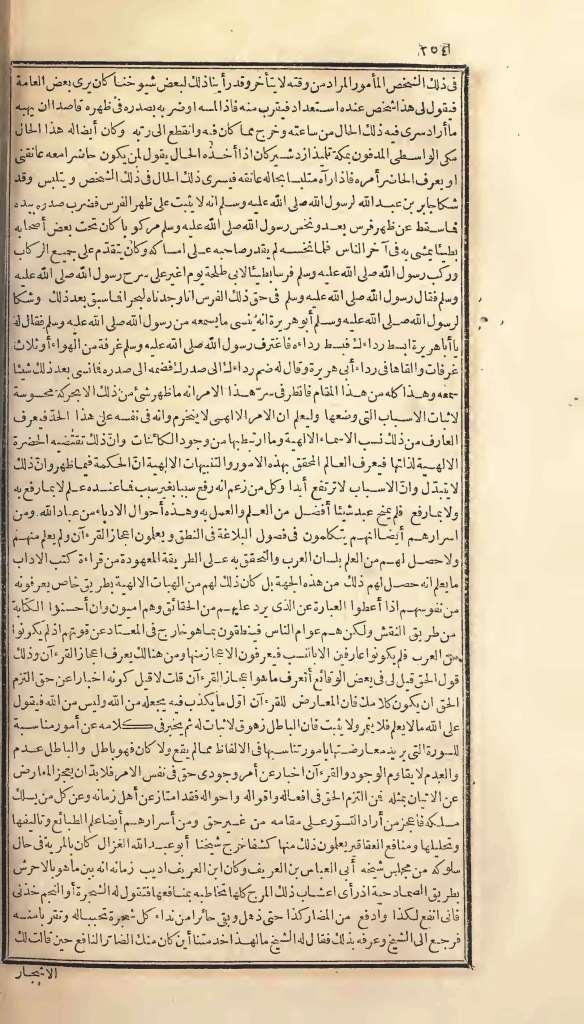 ٢٥٤
فى ذلك الشخص المأمور المراد من وقته لا يتأخر وقد رأينا ذلك لبعض شيوخنا كان يرى بعض العامة
فيقول لى هذا شخص عنده استعداد فيقرب منه فاذا لمسه او ضربه بصدره فى ظهره قاصدا ان يهبه
ما أراد سرى فيه ذلك الحال من ساعته وخرج مما كان فيه وانقطع الى ربه وكان أيضا له هذا الحال
مكى الواسطى المدفون بمكة تلميذ ازدشير كان اذا أخذه الحال يقول لمن يكون حاضرا معه عانقنى
او يعرف الحاضر أمره فاذا رآه متلبسا بحاله عانقه فيسرى ذلك الحال فى ذلك الشخص ويتلبس وقد
شكا جابر بن عبد الله لرسول الله صلى الله عليه وسلم انه لا يثبت على ظهر الفرس فضرب صدره بيده
فما سقط عن ظهر فرس بعد ونخس رسول الله صلى الله عليه وسلم مركوبا كان تحت بعض أصحابه
بطيئا يمشى به فى آخر الناس فلما نخسه لم يقدر صاحبه على امساكه وكان يتقدم على جميع الركاب
وركب رسول الله صلى الله عليه وسلم فرسا بطيئا لابى طلحة يوم اغير على سرح رسول الله صلى الله عليه
وسلم فقال رسول الله صلى الله عليه وسلم فى حق ذلك الفرس انا وجدناه لبحرا فما سبق بعد ذلك وشكا
لرسول الله صلى الله عليه وسلم أبو هريرة انه ينسى ما يسمعه من رسول الله صلى الله عليه وسلم فقال له
يا أبا هريرة ابسط رداءك فبسط رداءه فاغترف رسول الله صلى الله عليه وسلم غرفة من الهواء أو ثلاث
غرفات وألقاها فى رداء أبى هريرة وقال له ضم رداءك الى صدرك فضمه الى صدره فما نسى بعد ذلك شيئا
سمعه وهذا كله من هذا المقام فانظر فى سر هذا الامر انه ما ظهر شئ من ذلك الا بحركة محسوسة
لاثبات الاسباب التى وضعها وليعلم ان الامر الالهى لا ينخرم وانه فى نفسه على هذا الحد فيعرف
العارف من ذلك نسب الاسماء الالهية وما ارتبط بها من وجود الكائنات وان ذلك تقتضيه الحضرة
الالهية لذاتها فيعرف العالم المحقق بهذه الامور والتنبيهات الالهية ان الحكمة فيما ظهر وان ذلك
لا يتبدل وان الاسباب لا ترتفع أبدا وكل من زعم انه رفع سببا بغير سبب فما عنده علم لا بما رفع به
ولا بما رفع فلم يمنح عبد شيئا أفضل من العلم والعمل به وهذه أحوال الادباء من عباد الله ومن
اسرارهم أيضا انهم يتكلمون فى فصول البلاغة فى النطق ويعلمون اعجاز القرءآن ولم يعلم منهم
ولا حصل لهم من العلم بلسان العرب والتحقق به على الطريقة المعهودة من قراءة كتب الاداب
ما يعلم انه حصل لهم ذلك من هذه الجهة بل كان ذلك لهم من الهبات الالهية بطريق خاص يعرفونه
من نفوسهم اذا أعطوا العبارة عن الذى يرد عليهم من الحقائق وهم اميون وان أحسنوا الكتابة
من طريق النقش ولكن هم عوام الناس فينطقون بما هو خارج فى المعتاد عن قوتهم اذ لم يكونوا
من العرب فلم يكونوا عارفين الا بالنسب فيعرفون الاعجاز منها ومن هنالك يعرف اعجاز القرءآن وذلك
قول الحق قيل لى فى بعض الوقائع أتعرف ما هو اعجاز القرءآن قلت لا قيل كونه اخبارا عن حق التزم
الحق ان يكون كلامك فان المعارض للقرءآن اول ما يكذب فيه يجعله من الله وليس من الله فيقول
على الله ما لا يعلم فلا يثمر ولا يثبت فان الباطل زهوق لا ثبات له ثم يخبر فى كلامه عن أمور مناسبة
للسورة التى يريد معارضتها بامور تناسبها فى الالفاظ مما لم يقع ولا كان فهو باطل والباطل عدم
والعدم لا يقاوم الوجود والقرءآن اخبار عن أمر وجودى حق فى نفس الامر فلا بد ان يعجز المعارض
عن الاتيان بمثله فمن التزم الحق فى افعاله واقواله واحواله فقد امتاز عن أهل زمانه وعن كل من يسلك
مسلكه فاعجز من أراد التسور على مقامه من غير حق ومن أسرارهم أيضا علم الطبائع وتاليفها
وتحليلها ومنافع العقاقير يعلمون ذلك منها كشفا خرج شيخنا أبو عبد الله الغزال كان بالمرية فى حال
سلوكه من مجلس شيخه أبى العباس بن العريف وكان ابن العريف اديب زمانه انه بين ما هو بالاحرش
بطريق الصمادحية اذ رأى اعشاب ذلك المرج كلها تخاطبه بمنافعها فتقول له الشجرة أو النجم خذنى
فانى انفع لكذا وادفع من المضار كذا حتى ذهل وبقى حائرا من نداء كل شجرة تحببا له وتقربا منه
فرجع الى الشيخ وعرفه بذلك فقال له الشيخ ما لهذا خدمتنا أين كان منك الضار النافع حين قالت لك
الاشجار